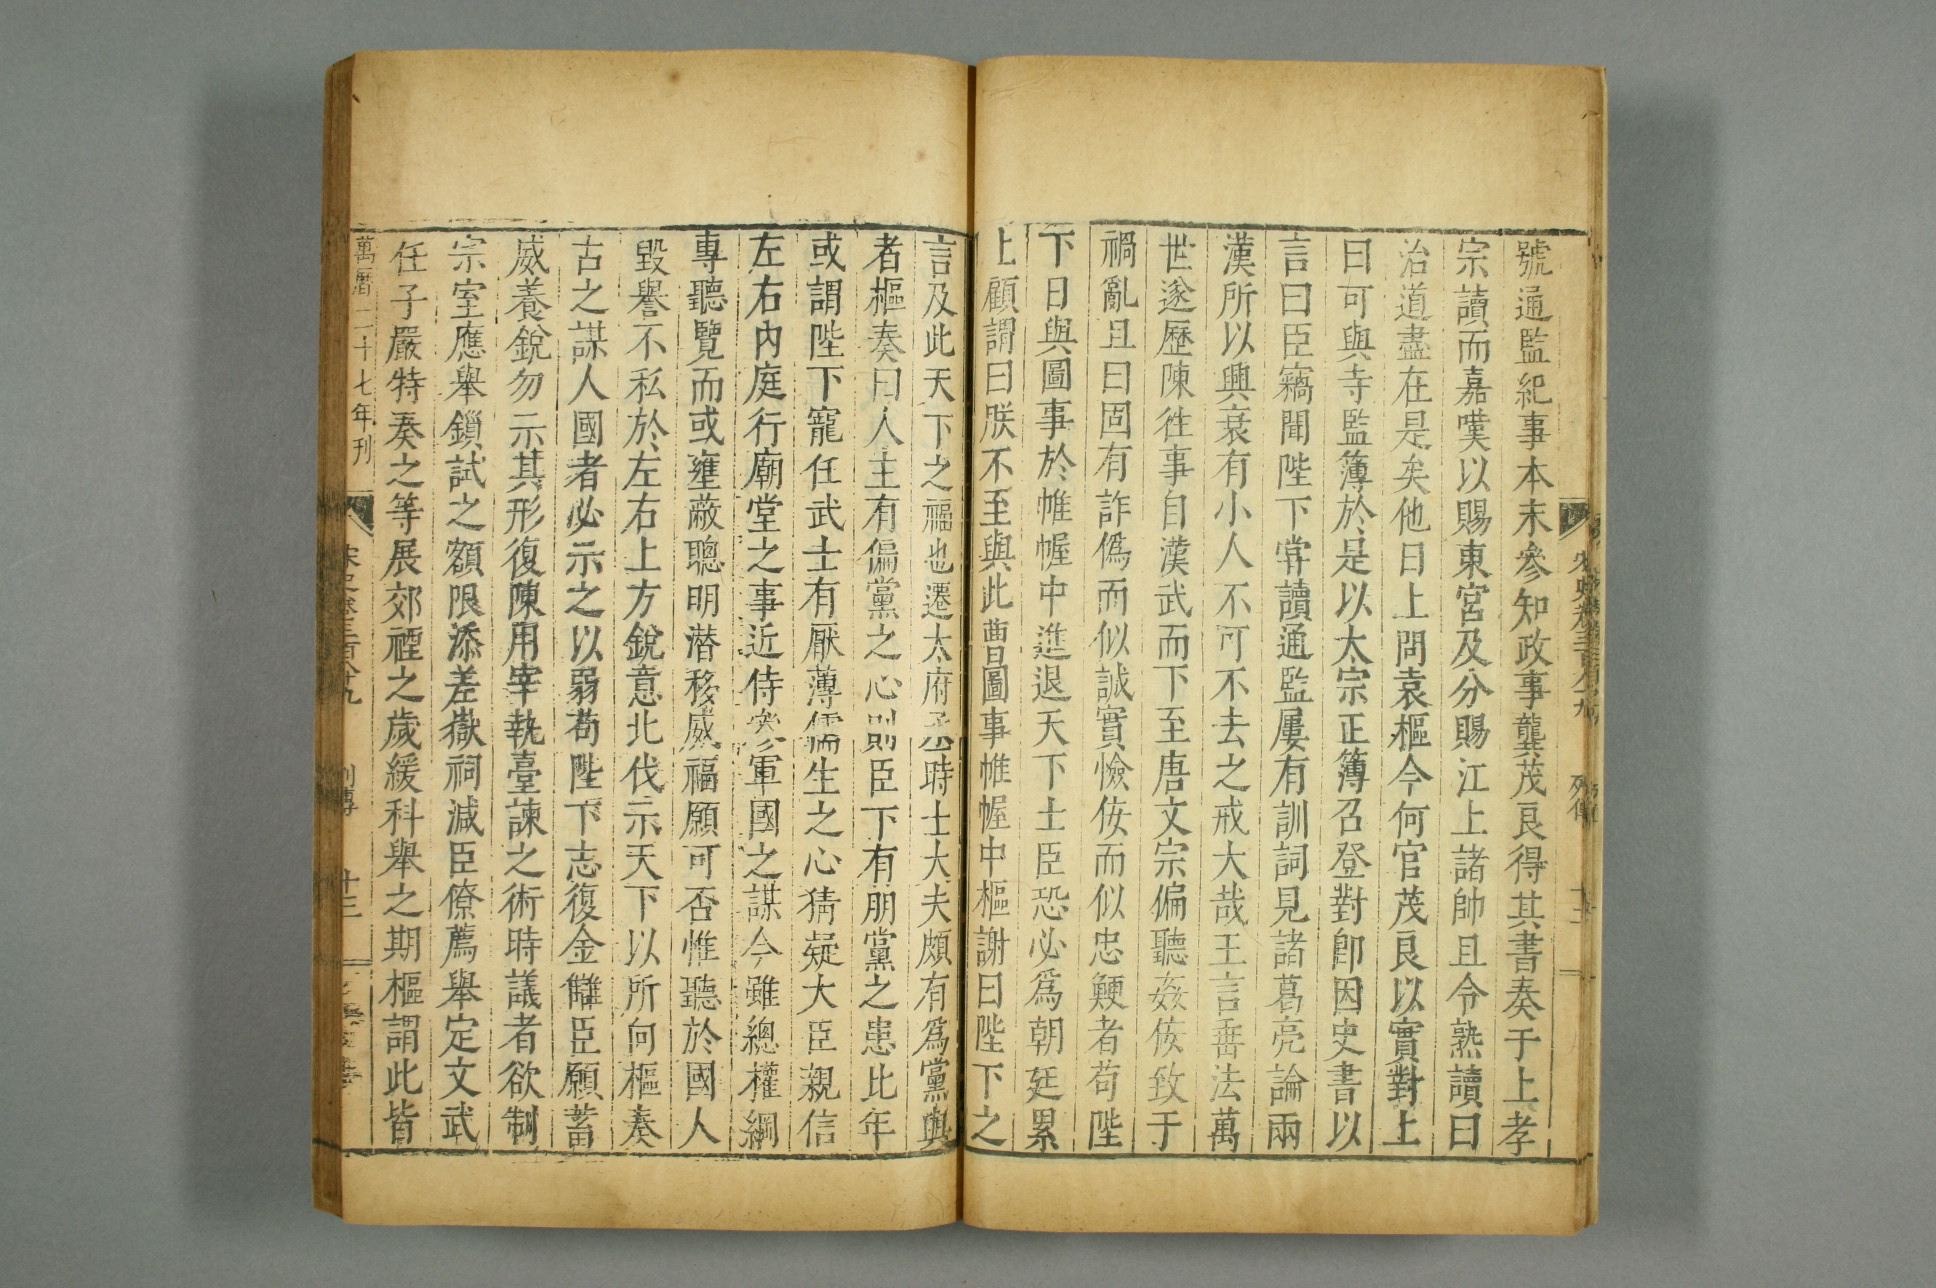 號通監紀事本末參知政事龔茂良得其書奏于上孝
宗讀而嘉嘆以賜東宮及分賜江上諸帥且令熟讀曰
治道盡在是矣他日上問袁樞今何官茂良以實對上
曰可與寺監簿於是以太宗正簿召登對卽因史書以
言曰臣竊聞陛下甞讀通監屢有訓詞見諸葛亮論兩
漢所以興衰有小人不可不去之戒大哉王言垂法萬
世遂歷陳徃事自漢武而下至唐文宗偏聽姦佞致于
禍亂且曰固有詐僞而似誠實憸佞而似忠鯁者苟陛
下日與圖事於帷幄中進退天下士臣恐必爲朝廷累
上顧謂曰朕不至與此曹圖事帷幄中樞謝曰陛下之
言及此天下之福也遷太府丞時士大夫頗有爲黨與
者樞奏曰人主有偏黨之心則臣下有朋黨之患比年
或謂陛下寵任武士有厭薄儒生之心猜疑大臣親信
左右內庭行廟堂之事近侍叅軍國之謀今雖總權綱
專聽覽而或壅蔽聰明潛移威福願可否惟聽於國人
毀譽不私於左右上方銳意北伐示天下以所向樞奏
古之謀人國者必示之以弱苟陛下志復金讎臣願蓄
威養銳勿示其形復陳用宰執臺諫之術時議者欲制
宗室應舉鎖試之額限添差嶽祠減臣僚薦舉定文武
任子嚴特奏之等展郊禋之歲緩科舉之期樞謂此皆
萬曆二十七年刊
宋史卷三百八十九
列傳
十三